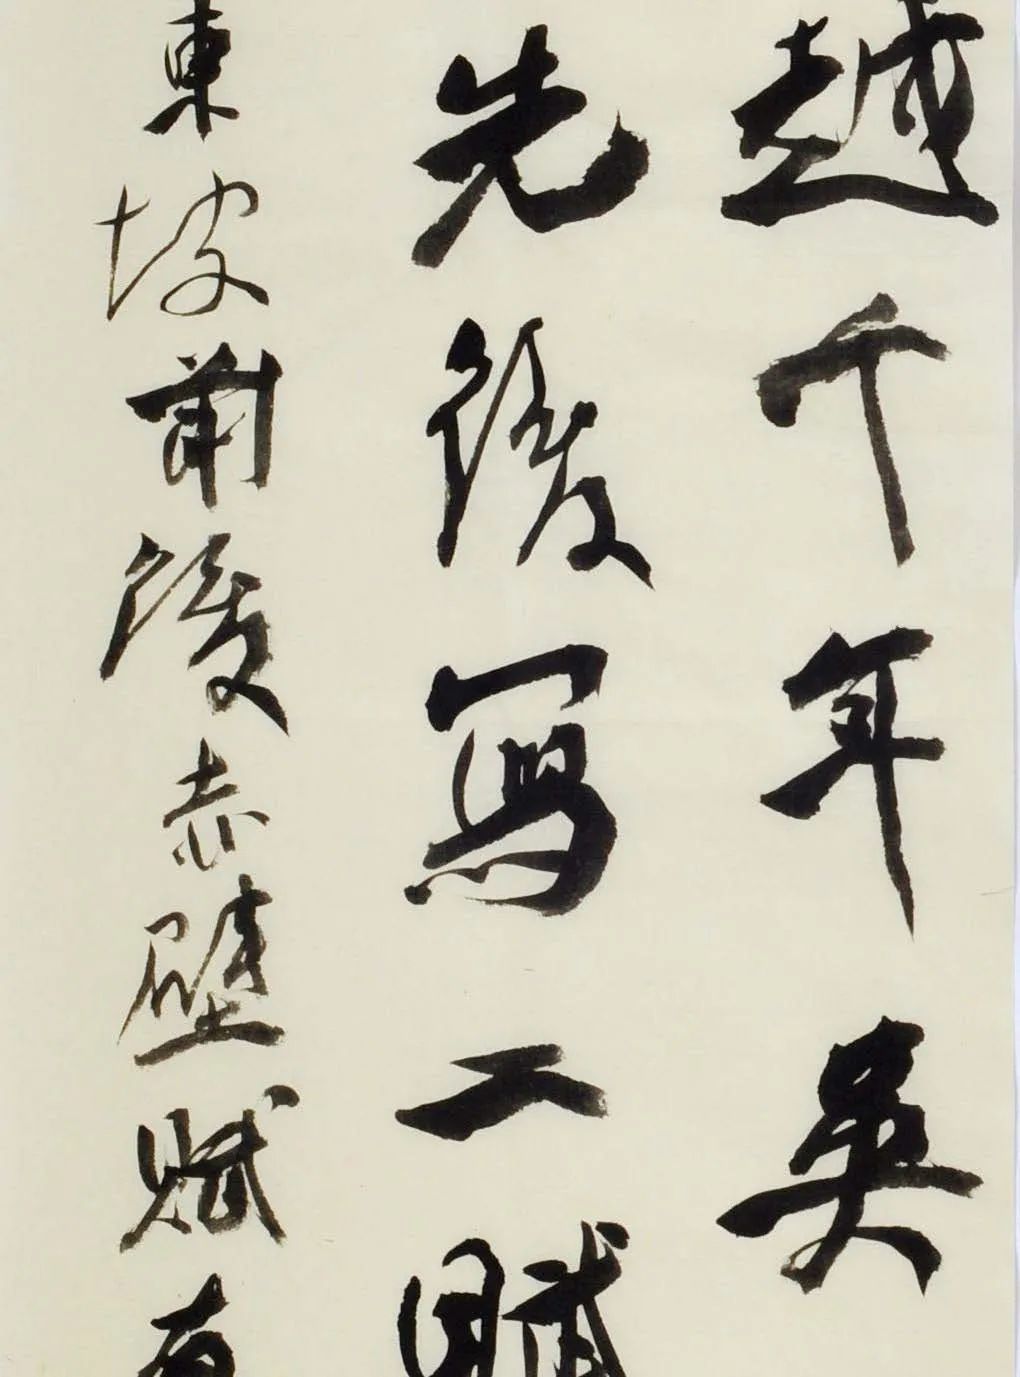 越千年吳
先後寫二賦
東坡前後赤壁賦有